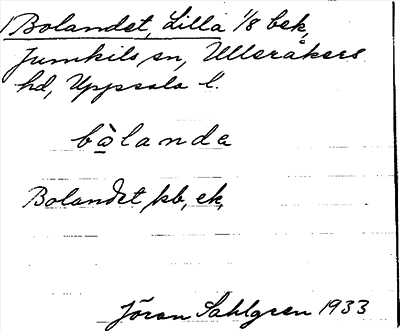 Bolandet, Lilla 1/8 bek,
Jumkils sn, Ulleråkers
hd, Uppsala l.
bòlanda
Bolandet kb, ek,
Jöran Sahlgren 1933